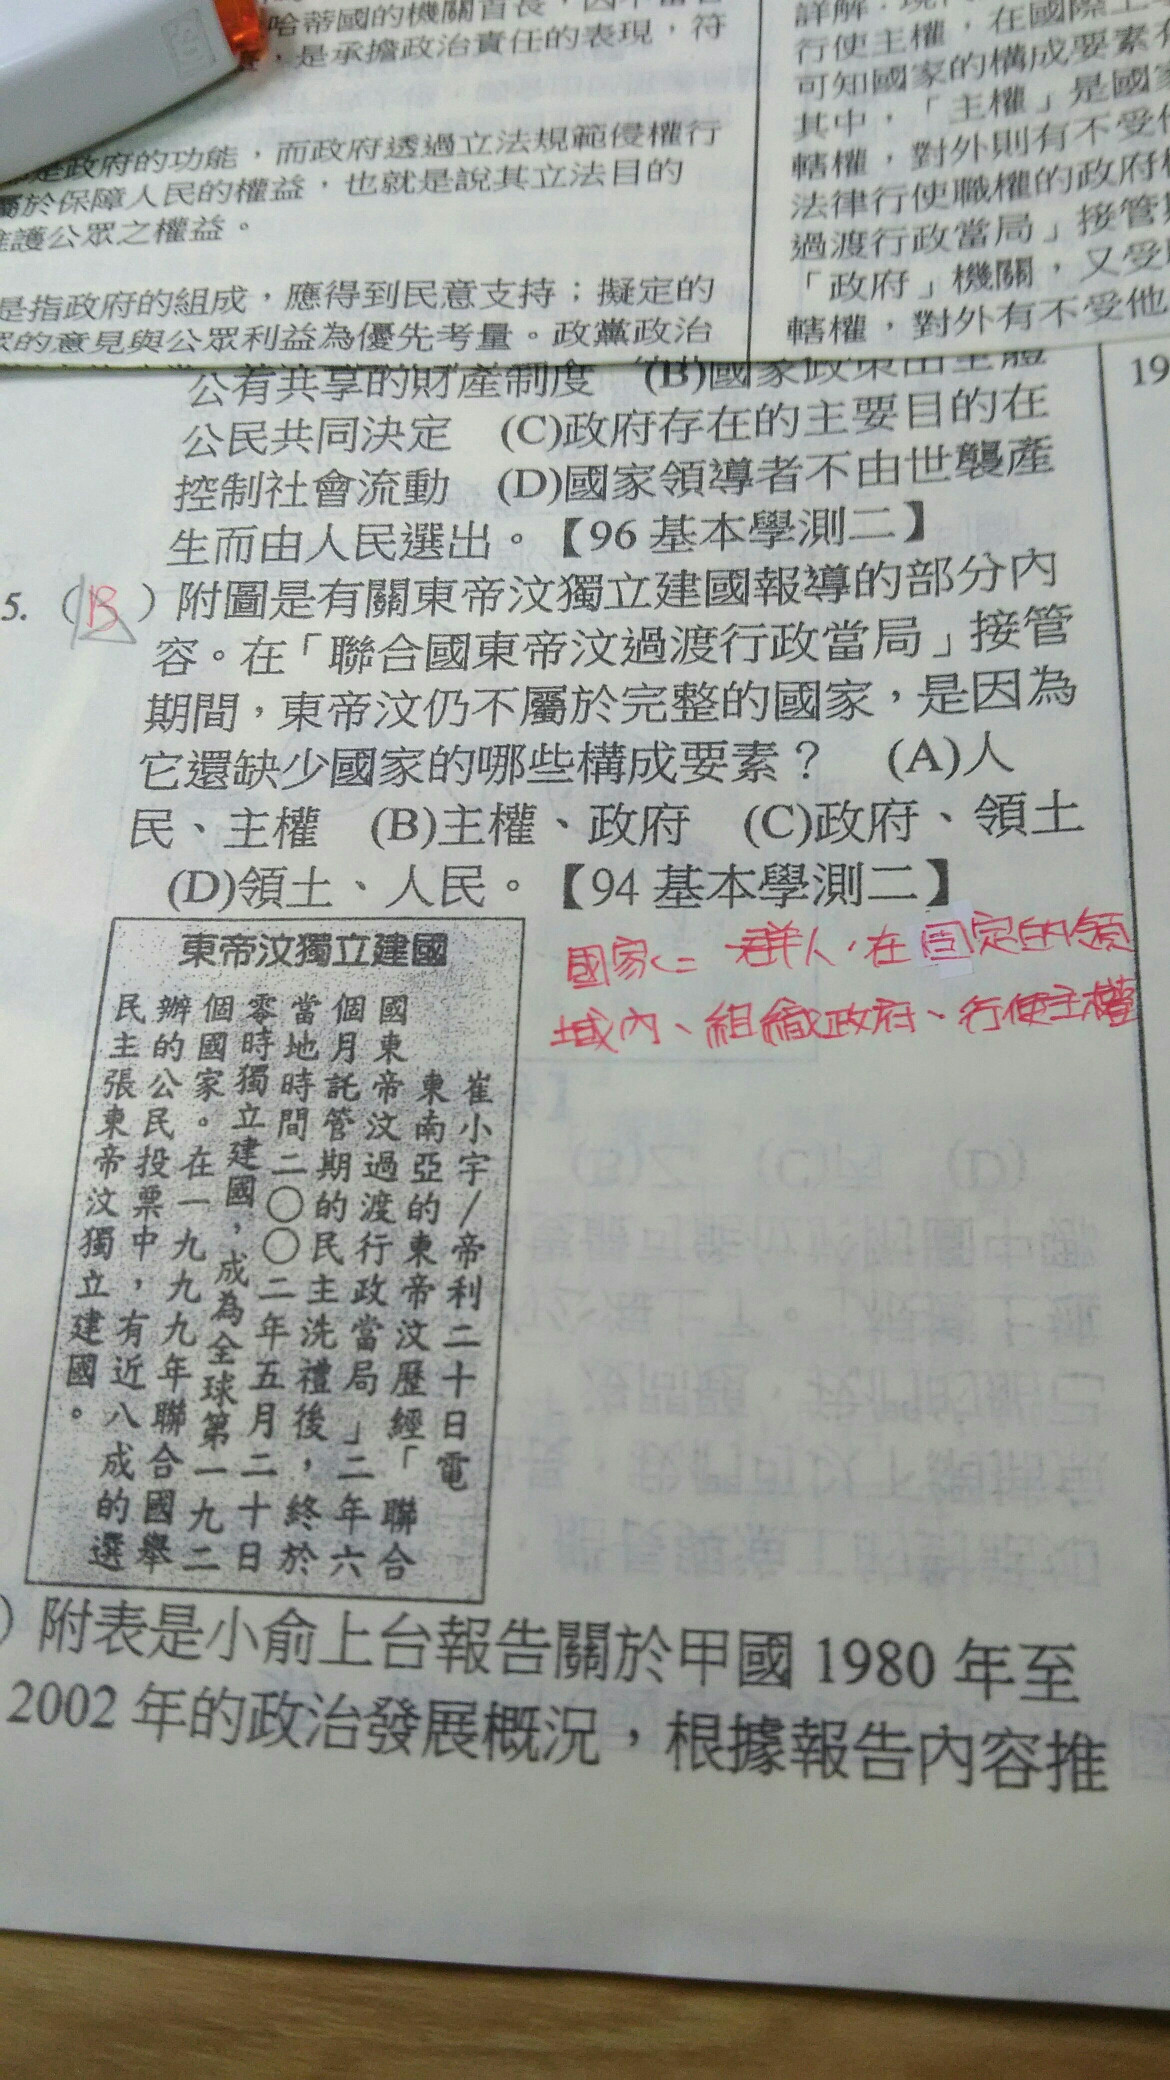 哈蒂國的機關首長，因不
，是承擔政治責任的表現，符
是政府的功能，而政府透過立法規範侵權行
屬於保障人民的權益，也就是說其立法目的
維護公眾之權益。
是指政府的組成，應得到民意支持；擬定的
眾的意見與公眾利益為優先考量。政黨政治
詳解：現
行使主權，在國際上
可知國家的構成要素有
其中，「主權」是國家
轄權，對外則有不受他
法律行使職權的政府
過渡行政當局」接管
「政府」機關，又受
轄權，對外有不受他
公有共享的財產制度 (B)國家政策由全體
公民共同決定 (C)政府存在的主要目的在
控制社會流動 (D)國家領導者不由世襲產
生而由人民選出。【96 基本學測二】
19
5. (B) 附圖是有關東帝汶獨立建國報導的部分內
容。在「聯合國東帝汶過渡行政當局」接管
期間，東帝汶仍不屬於完整的國家，是因為
它還缺少國家的哪些構成要素？ (A)人
民、主權 (B)主權、政府 (C)政府、領土
(D)領土、人民。【94 基本學測二】
國家： 一群人，在固定的領
域內、組織政府、行使主權
東帝汶獨立建國
崔小宇/帝利二十日電
東南亞的東帝汶歷經「聯合
國東帝汶過渡行政當局」二年六
個月託管期的民主洗禮後，終於
當地時間二〇〇二年五月二十日
零時獨立建國，成為全球第一九二
個國家。在一九九九年聯合國舉
辦的公民投票中，有近八成的選
民主張東帝汶獨立建國。
) 附表是小俞上台報告關於甲國 1980 年至
2002 年的政治發展概況，根據報告內容推